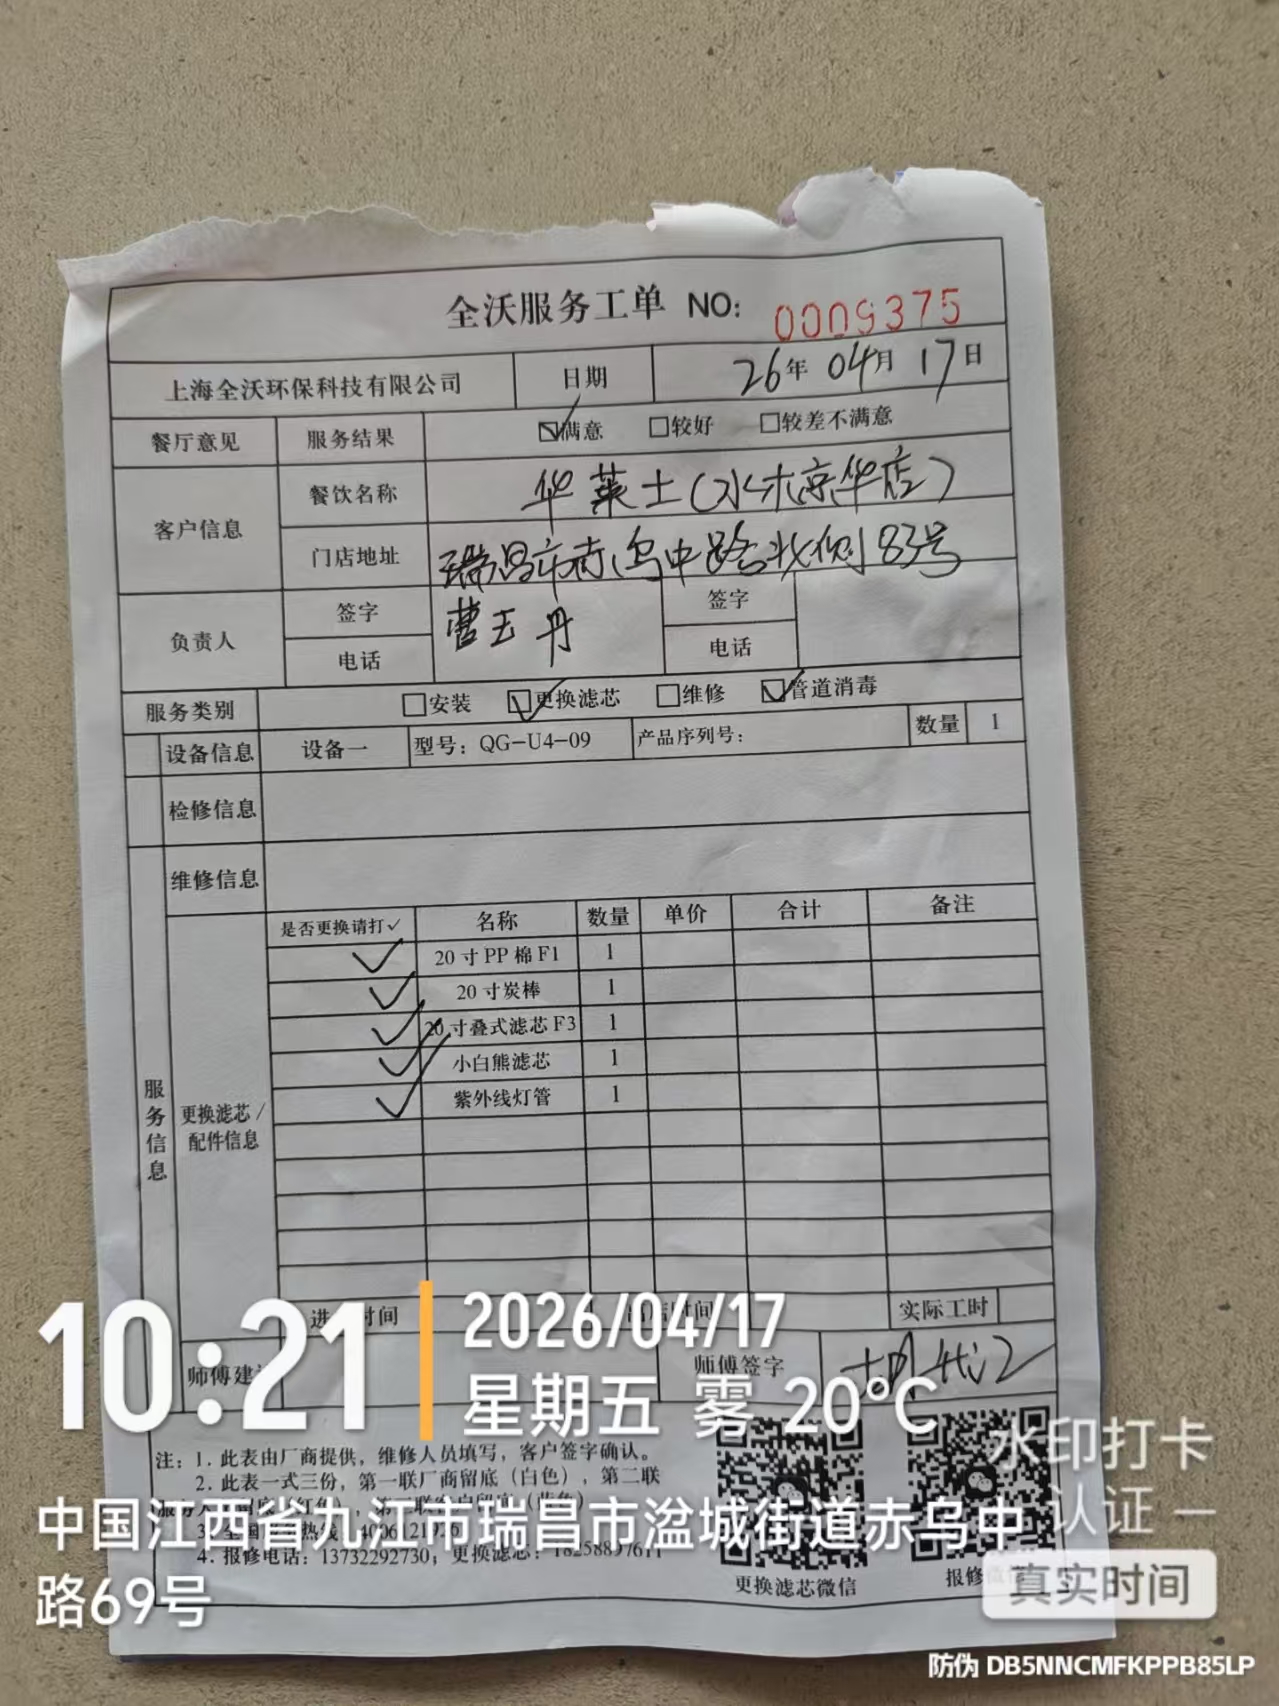 全沃服务工单 NO: 0009375
上海全沃环保科技有限公司 日期 26年 04月 17日
餐厅意见 服务结果 ☑满意 □较好 □较差不满意
客户信息 餐饮名称 华莱士(水木京华店)
门店地址 瑞昌市赤乌中路北侧83号
负责人 签字 曹玉丹 签字
电话 电话
服务类别 □安装 ☑更换滤芯 □维修 ☑管道消毒
设备信息 设备一 型号: QG-U4-09 产品序列号: 数量 1
检修信息
维修信息
服务信息 更换滤芯/配件信息
是否更换请打✓ 名称 数量 单价 合计 备注
✓ 20寸PP棉F1 1
✓ 20寸炭棒 1
✓ 20寸叠式滤芯F3 1
✓ 小白熊滤芯 1
✓ 紫外线灯管 1
进 时间 时间 实际工时
师傅建 师傅签字
注: 1. 此表由厂商提供，维修人员填写，客户签字确认。
2. 此表一式三份，第一联厂商留底（白色），第二联
4. 报修电话: 13732292730; 更换滤芯:
更换滤芯微信 报修
10:21
2026/04/17
星期五 雾 20°C
中国江西省九江市瑞昌市湓城街道赤乌中
路69号
水印打卡
认证
真实时间
防伪 DB5NNCMFKPPB85LP